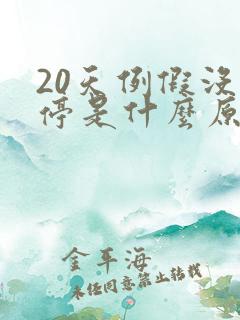 20天例假没
停是什麽原
金平海
未经同意禁止转载